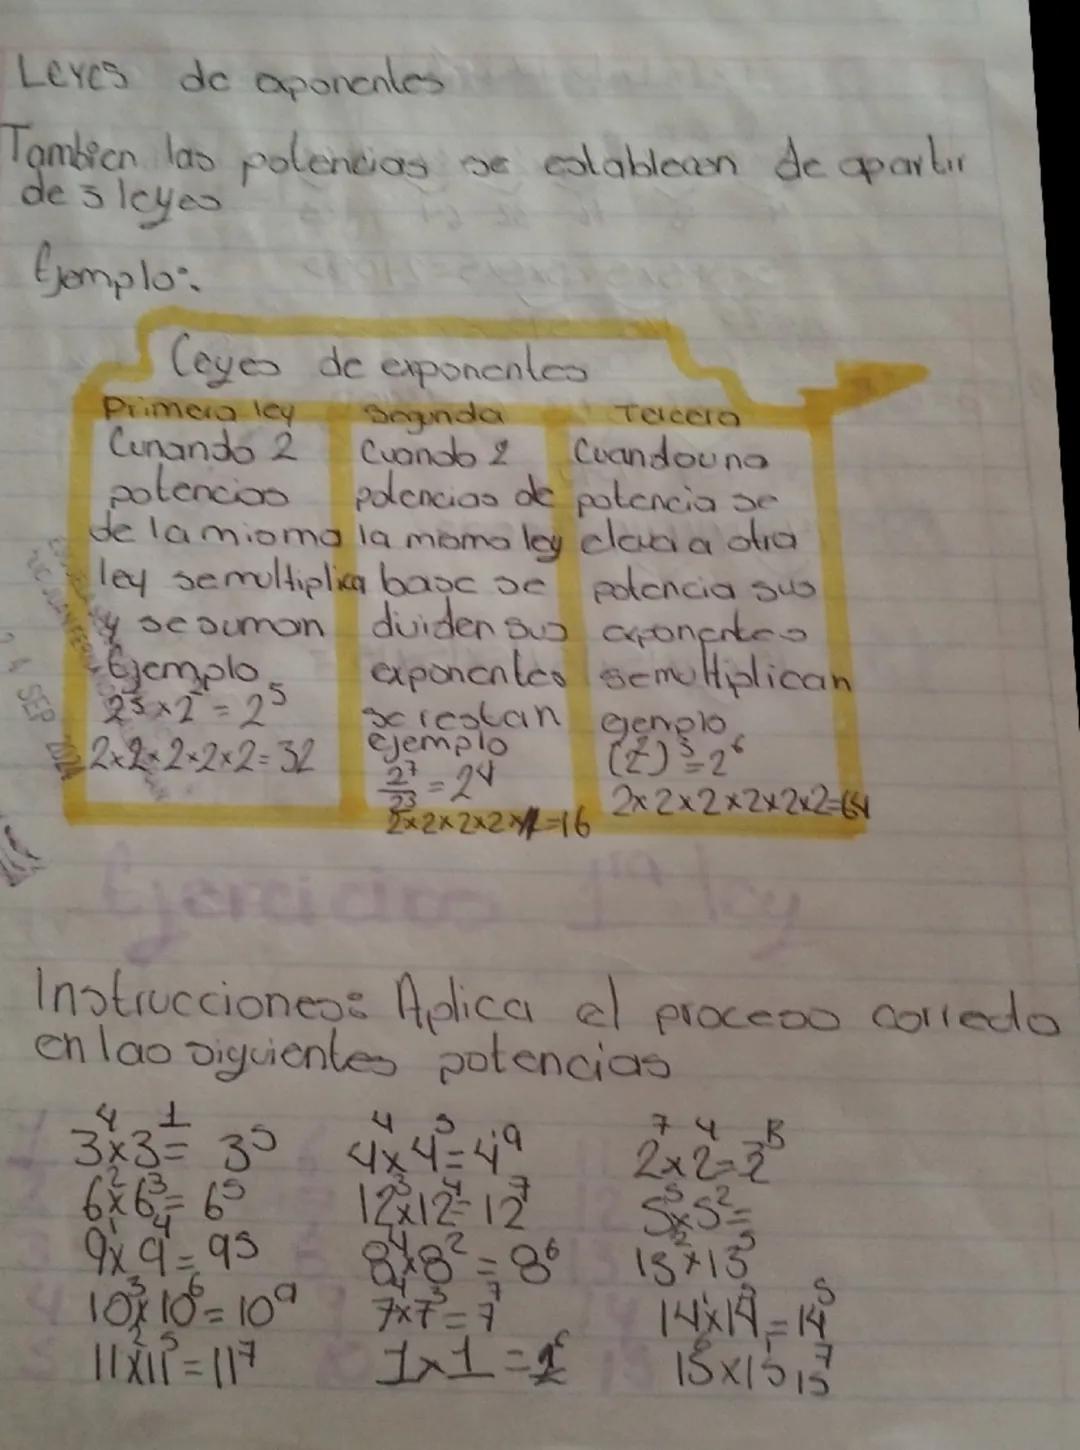 Leyes de exponentes
Tambien las potencias se establecen de apartir
de 3 leyes
Ejemplo:
Leyes de exponentes
Primera ley
Cunando 2
potencias
de la misma
ley se multiplica
y se suman
Ejemplo
2³×2²=2⁵
2×2×2×2×2=32
Segunda
Cuando 2
potencias de
la misma ley
base se
dividen sus
exponentes
se restan
ejemplo
2⁷/2³=2⁴
2×2×2×2=16
Tercera
Cuando una
potencia se
eleva a otra
potencia sus
exponentes
se multiplican
ejemplo
(2²)³=2⁶
2×2×2×2×2×2=64
Ejercicios 1ra ley
Instrucciones: Aplica el proceso correcto
en las siguientes potencias
3⁴×3¹= 3⁵
6²×6³= 6⁵
9¹×9⁴=9⁵
10³×10⁶=10⁹
11²×11⁵=11⁷
4⁴×4⁵=4⁹
12³×12⁴=12⁷
8⁴×8²=8⁶
7⁴×7³=7⁷
1×1=
2⁷×2⁴=2
5⁵×5²=
13²×13⁵
14×14=14⁵
15⁶×15¹ 15⁷